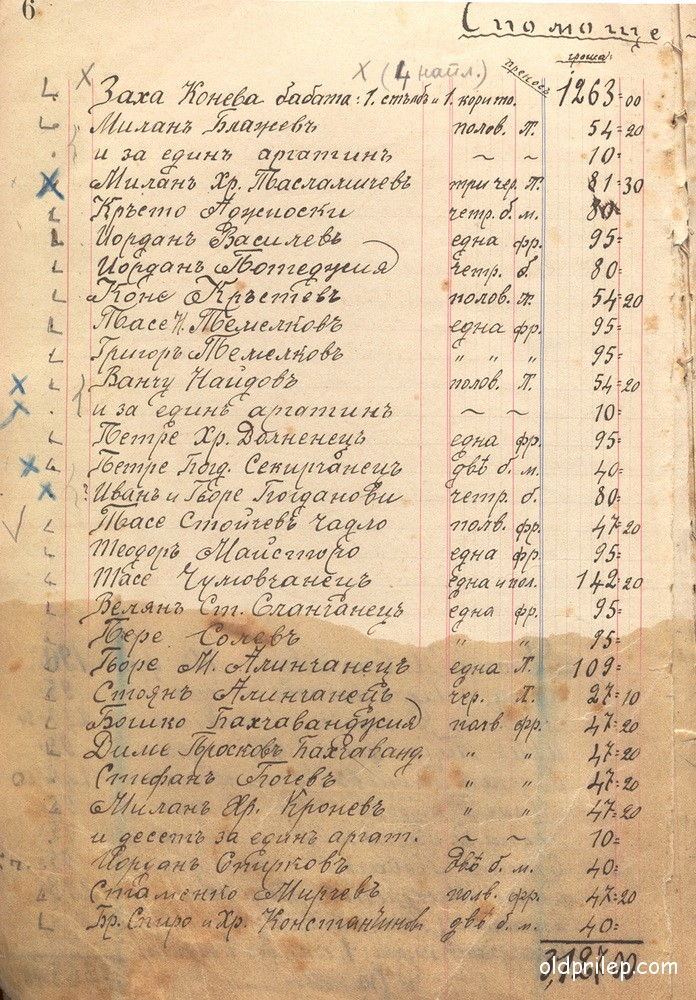 6
Спомоще
гроша:
X X (4 напл.) преносъ
Заха Конева бабата: 1. стълбъ и 1. корито. 1263=00
Миланъ Блажевъ полов. Л. 54=20
и за единъ аргатинъ ~ ~ 10=
Миланъ Хр. Тасламичевъ три чер. Л. 81=30
Кръсто Аджиоски четр. б. м. 80
Иорданъ Василевъ една фр. 95=
Иорданъ четр. б. 80=
Коне Кръстевъ полов. Л. 54=20
Тасе Н. Темелковъ една фр. 95=
Григоръ Темелковъ " " " 95=
Ванчу Наидовъ полов. Л. 54=20
и за единъ аргатинъ ~ ~ 10=
Петре Хр. Долненецъ една фр. 95=
Петре Богд. Секирчанецъ двѣ б. м. 40=
Иванъ и Ѓоре Богданови четр. б. 80=
Тасе Стойчевъ Чадло полв. фр. 47=20
Теодоръ Майсторо една фр. 95=
Тасе Чумовчанецъ една и пол. 142=20
Велянъ Ст. Сланчанецъ една фр. 95=
Пере Солевъ " " 95=
Ѓоре М. Алинчанецъ една Л. 109=
Стоянъ Алинчанецъ чер. Л. 27=10
Бошко Бахчаванджия полв. фр. 47=20
Диме Бахчаванд. " " 47=20
Стефанъ Гогевъ " " 47=20
Миланъ Хр. Кроневъ " " 47=20
и десетъ за единъ аргат. ~ ~ 10=
Иорданъ Спирковъ двѣ б. м. 40=
Стаменко Мирчевъ полв. фр. 47=20
Бр. Спиро и Хр. Константинови двѣ б. м. 40=
oldprilep.com